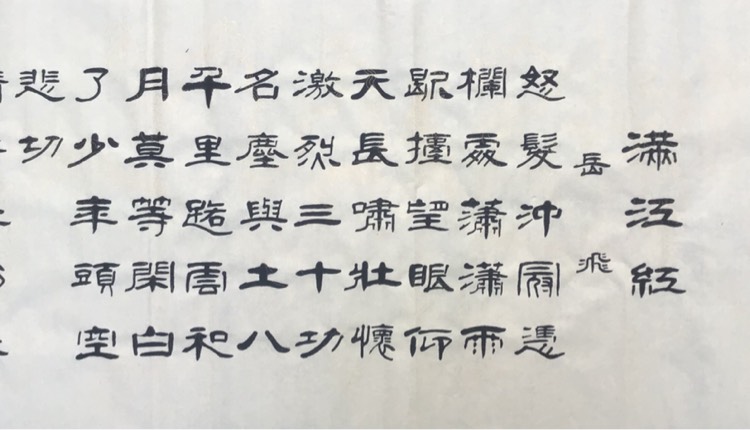 滿江紅
岳飛
怒髮沖冠憑
欄處瀟瀟雨
歇擡望眼仰
天長嘯壯懷
激烈三十功
名塵與土八
千里路雲和
月莫等閑白
了少年頭空
悲切